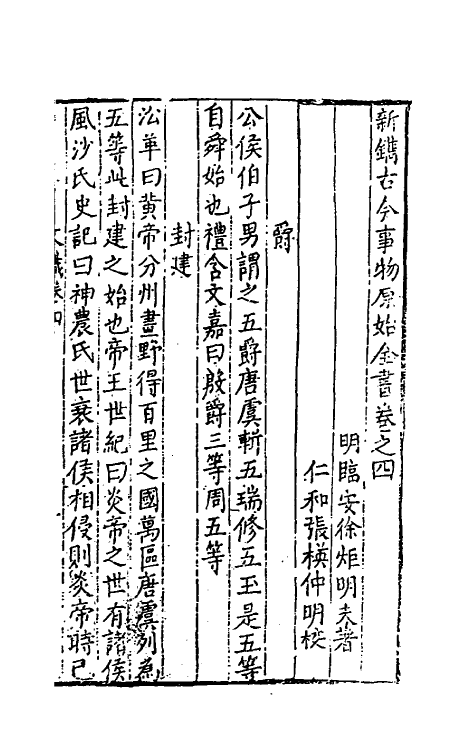 新鐫古今事物原始全書卷之四
明臨安徐炬明夫著
仁和張模仲明校
爵
公侯伯子男謂之五爵唐虞斬五瑞修五玉是五等
自舜始也禮含文嘉曰殷爵三等周五等
封建
沿革曰黄帝分州畫野得百里之國萬區唐虞列為
五等此封建之始也帝王世紀曰炎帝之世有諸侯
風沙氏史記曰神農氏世衰諸侯相侵則炎帝時已
卷四